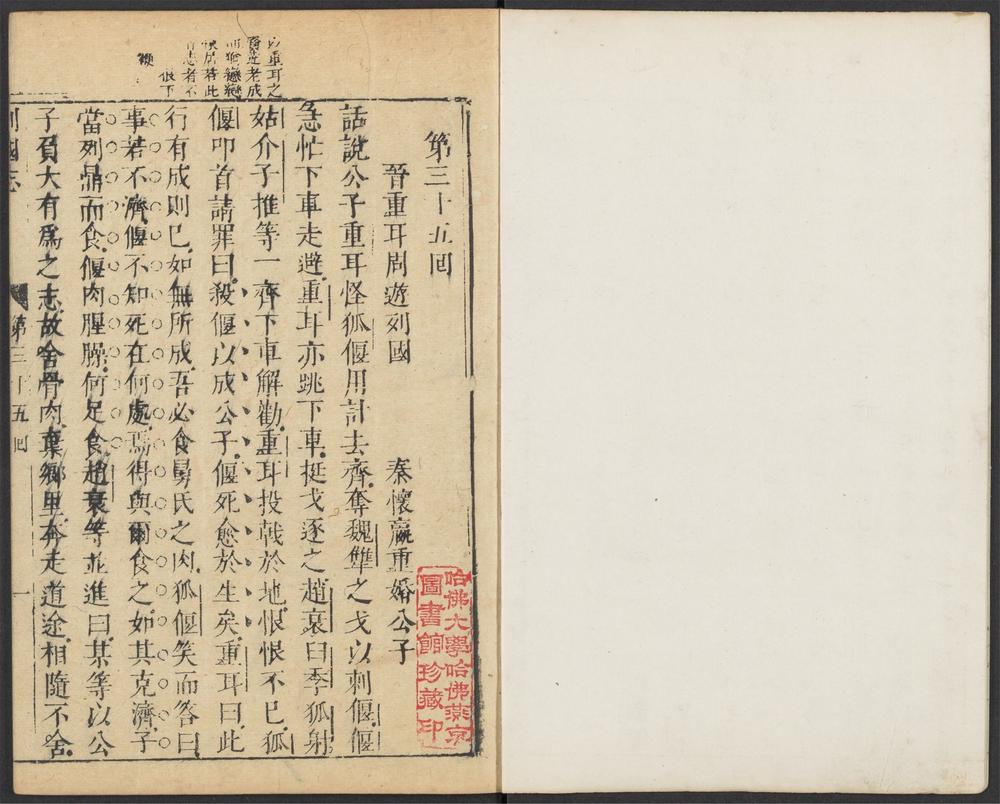 第三十五回
晉重耳周遊列國　秦懷嬴重婚公子
話說公子重耳怪狐偃用計去齊奪魏犨之戈以刺偃偃
急忙下車走避重耳亦跳下車挺戈逐之趙衰臼季狐射
姑介子推等一齊下車解勸重耳投戟於地恨恨不已狐
偃叩首請罪曰殺偃以成公子偃死愈於生矣重耳曰此
行有成則已如無所成吾必食舅氏之肉狐偃笑而答曰
事若不濟偃不知死在何處焉得與爾食之如其克濟子
當列鼎而食偃肉腥臊何足食趙衰等並進曰某等以公
子負大有爲之志故舍骨肉棄鄉里奔走道途相隨不舍
列國志　第三十五回　一
以重耳之
老成
戀戀
居若此
志者不
恨下
哈佛大學哈佛燕京
圖書館珍藏印